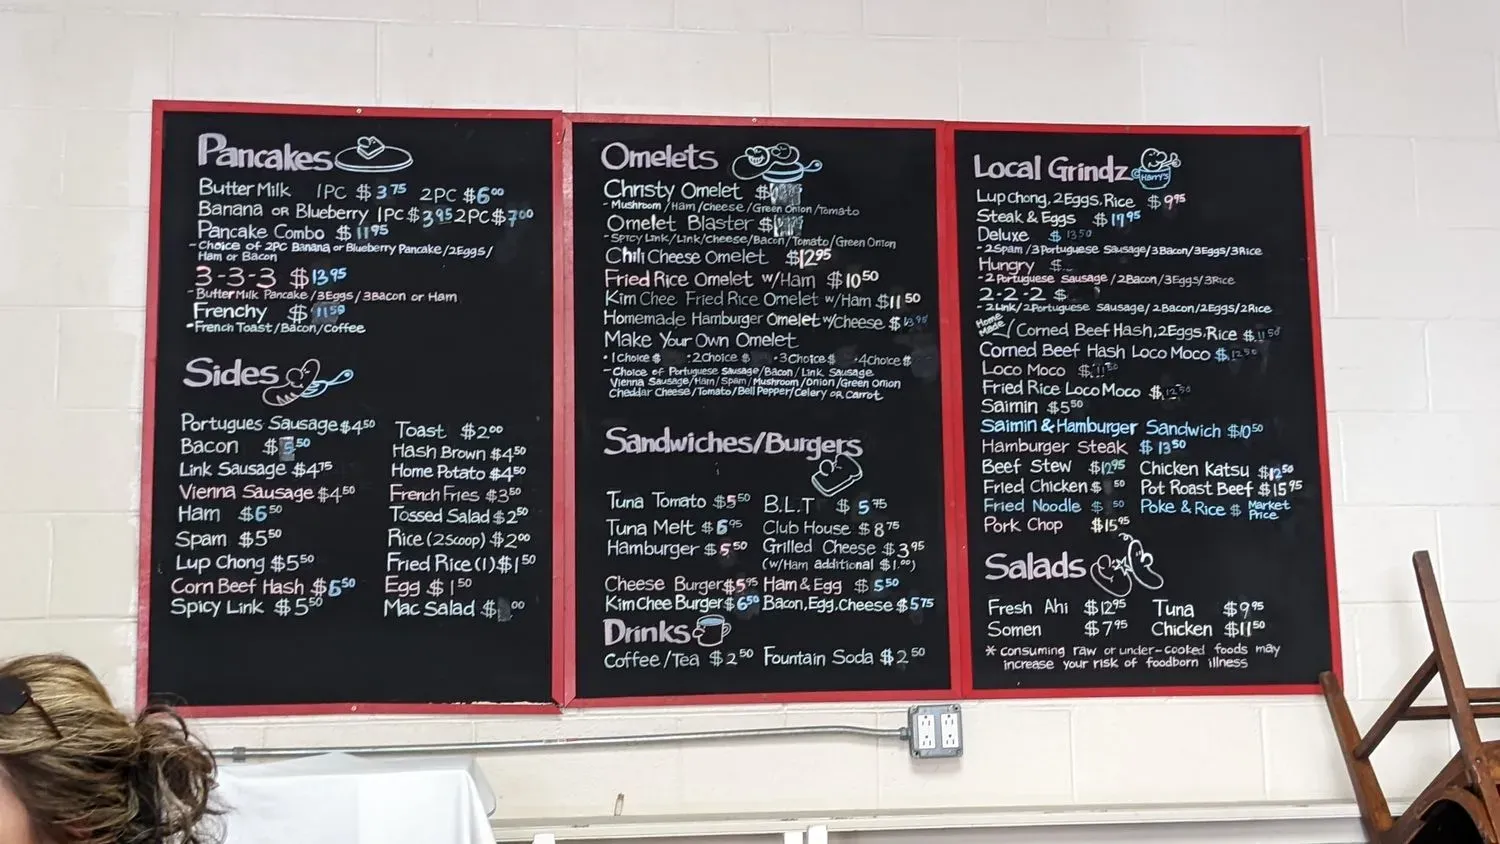 Pancakes
ButterMilk 1PC $3.75 2PC $6.00
Banana OR Blueberry 1PC $3.95 2PC $7.00
Pancake Combo $11.95
- Choice of 2PC Banana or Blueberry Pancake/2Eggs/
Ham or Bacon
3-3-3 $13.95
- ButterMilk Pancake/3Eggs/3Bacon or Ham
Frenchy $11.50
• French Toast/Bacon/Coffee
Sides
Portugues Sausage $4.50
Bacon $5.50
Link Sausage $4.75
Vienna Sausage $4.50
Ham $6.50
Spam $5.50
Lup Chong $5.50
Corn Beef Hash $6.50
Spicy Link $5.50
Toast $2.00
Hash Brown $4.50
Home Potato $4.50
French Fries $3.50
Tossed Salad $2.50
Rice (2Scoop) $2.00
Fried Rice (1) $1.50
Egg $1.50
Mac Salad $
Omelets
Christy Omelet $
- Mushroom/Ham/Cheese/Green Onion/Tomato
Omelet Blaster $
- Spicy Link/Link/Cheese/Bacon/Tomato/Green Onion
Chili Cheese Omelet $12.95
Fried Rice Omelet w/Ham $10.50
Kim Chee Fried Rice Omelet w/Ham $11.50
Homemade Hamburger Omelet w/Cheese $13.95
Make Your Own Omelet
• 1Choice $ • 2Choice $ • 3Choice $ • 4Choice $
- Choice of Portuguese Sausage/Bacon/Link Sausage
Vienna Sausage/Ham/Spam/Mushroom/Onion/Green Onion
Cheddar Cheese/Tomato/Bell Pepper/Celery OR Carrot
Sandwiches/Burgers
Tuna Tomato $5.50
Tuna Melt $6.95
Hamburger $5.50
Cheese Burger $5.95
Kim Chee Burger $6.50
B.L.T $5.75
Club House $8.75
Grilled Cheese $3.95
(w/Ham additional $1.00)
Ham & Egg $5.50
Bacon, Egg, Cheese $5.75
Drinks
Coffee/Tea $2.50 Fountain Soda $2.50
Local Grindz
Harry's
Lup Chong, 2Eggs, Rice $9.95
Steak & Eggs $17.95
Deluxe $13.50
- 2Spam/3Portuguese Sausage/3Bacon/3Eggs/3Rice
Hungry $
- 2Portuguese Sausage/2Bacon/3Eggs/3Rice
2-2-2 $
- 2Link/2Portuguese Sausage/2Bacon/2Eggs/2Rice
Home Made Corned Beef Hash, 2Eggs, Rice $11.50
Corned Beef Hash Loco Moco $12.50
Loco Moco $11.50
Fried Rice Loco Moco $12.50
Saimin $5.50
Saimin & Hamburger Sandwich $10.50
Hamburger Steak $13.50
Beef Stew $12.95 Chicken Katsu $12.50
Fried Chicken $ 50 Pot Roast Beef $15.95
Fried Noodle $ 50 Poke & Rice $ Market Price
Pork Chop $15.95
Salads
Fresh Ahi $12.95 Tuna $9.95
Somen $7.95 Chicken $11.50
* consuming raw or under-cooked foods may
increase your risk of foodborn illness